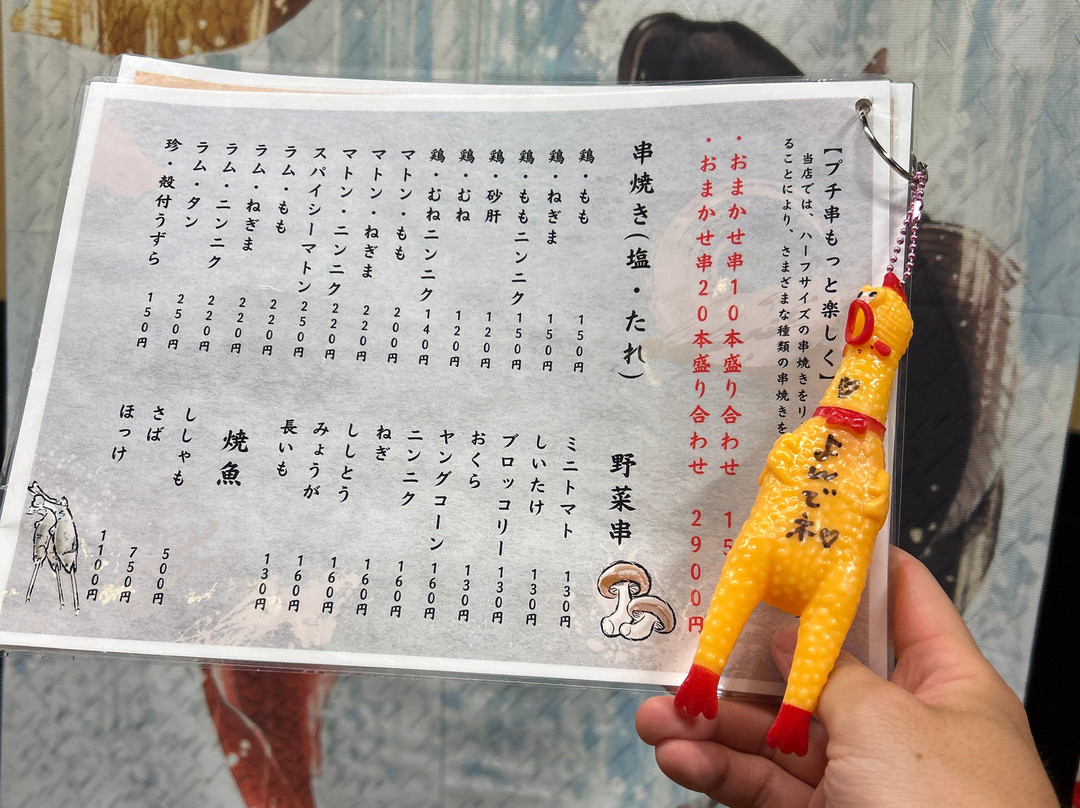 【プチ串もっと楽しく】
当店では、ハーフサイズの串焼きをリ
ることにより、さまざまな種類の串焼きを
・おまかせ串10本盛り合わせ
・おまかせ串20本盛り合わせ 2900円
串焼き(塩・たれ)
鶏・もも 150円
鶏・ねぎま 150円
鶏・ももニンニク 150円
鶏・砂肝 120円
鶏・むね 120円
鶏・むねニンニク 140円
マトン・もも 200円
マトン・ねぎま 220円
マトン・ニンニク 220円
スパイシーマトン 250円
ラム・もも 220円
ラム・ねぎま 220円
ラム・ニンニク 220円
ラム・タン 250円
珍・殻付うずら 150円
野菜串
ミニトマト 130円
しいたけ 130円
ブロッコリー 130円
おくら 130円
ヤングコーン 160円
ニンニク 160円
ねぎ 160円
ししとう 160円
みょうが 160円
長いも 130円
焼魚
ししゃも 500円
さば 750円
ほっけ 1100円
よんでネ♡